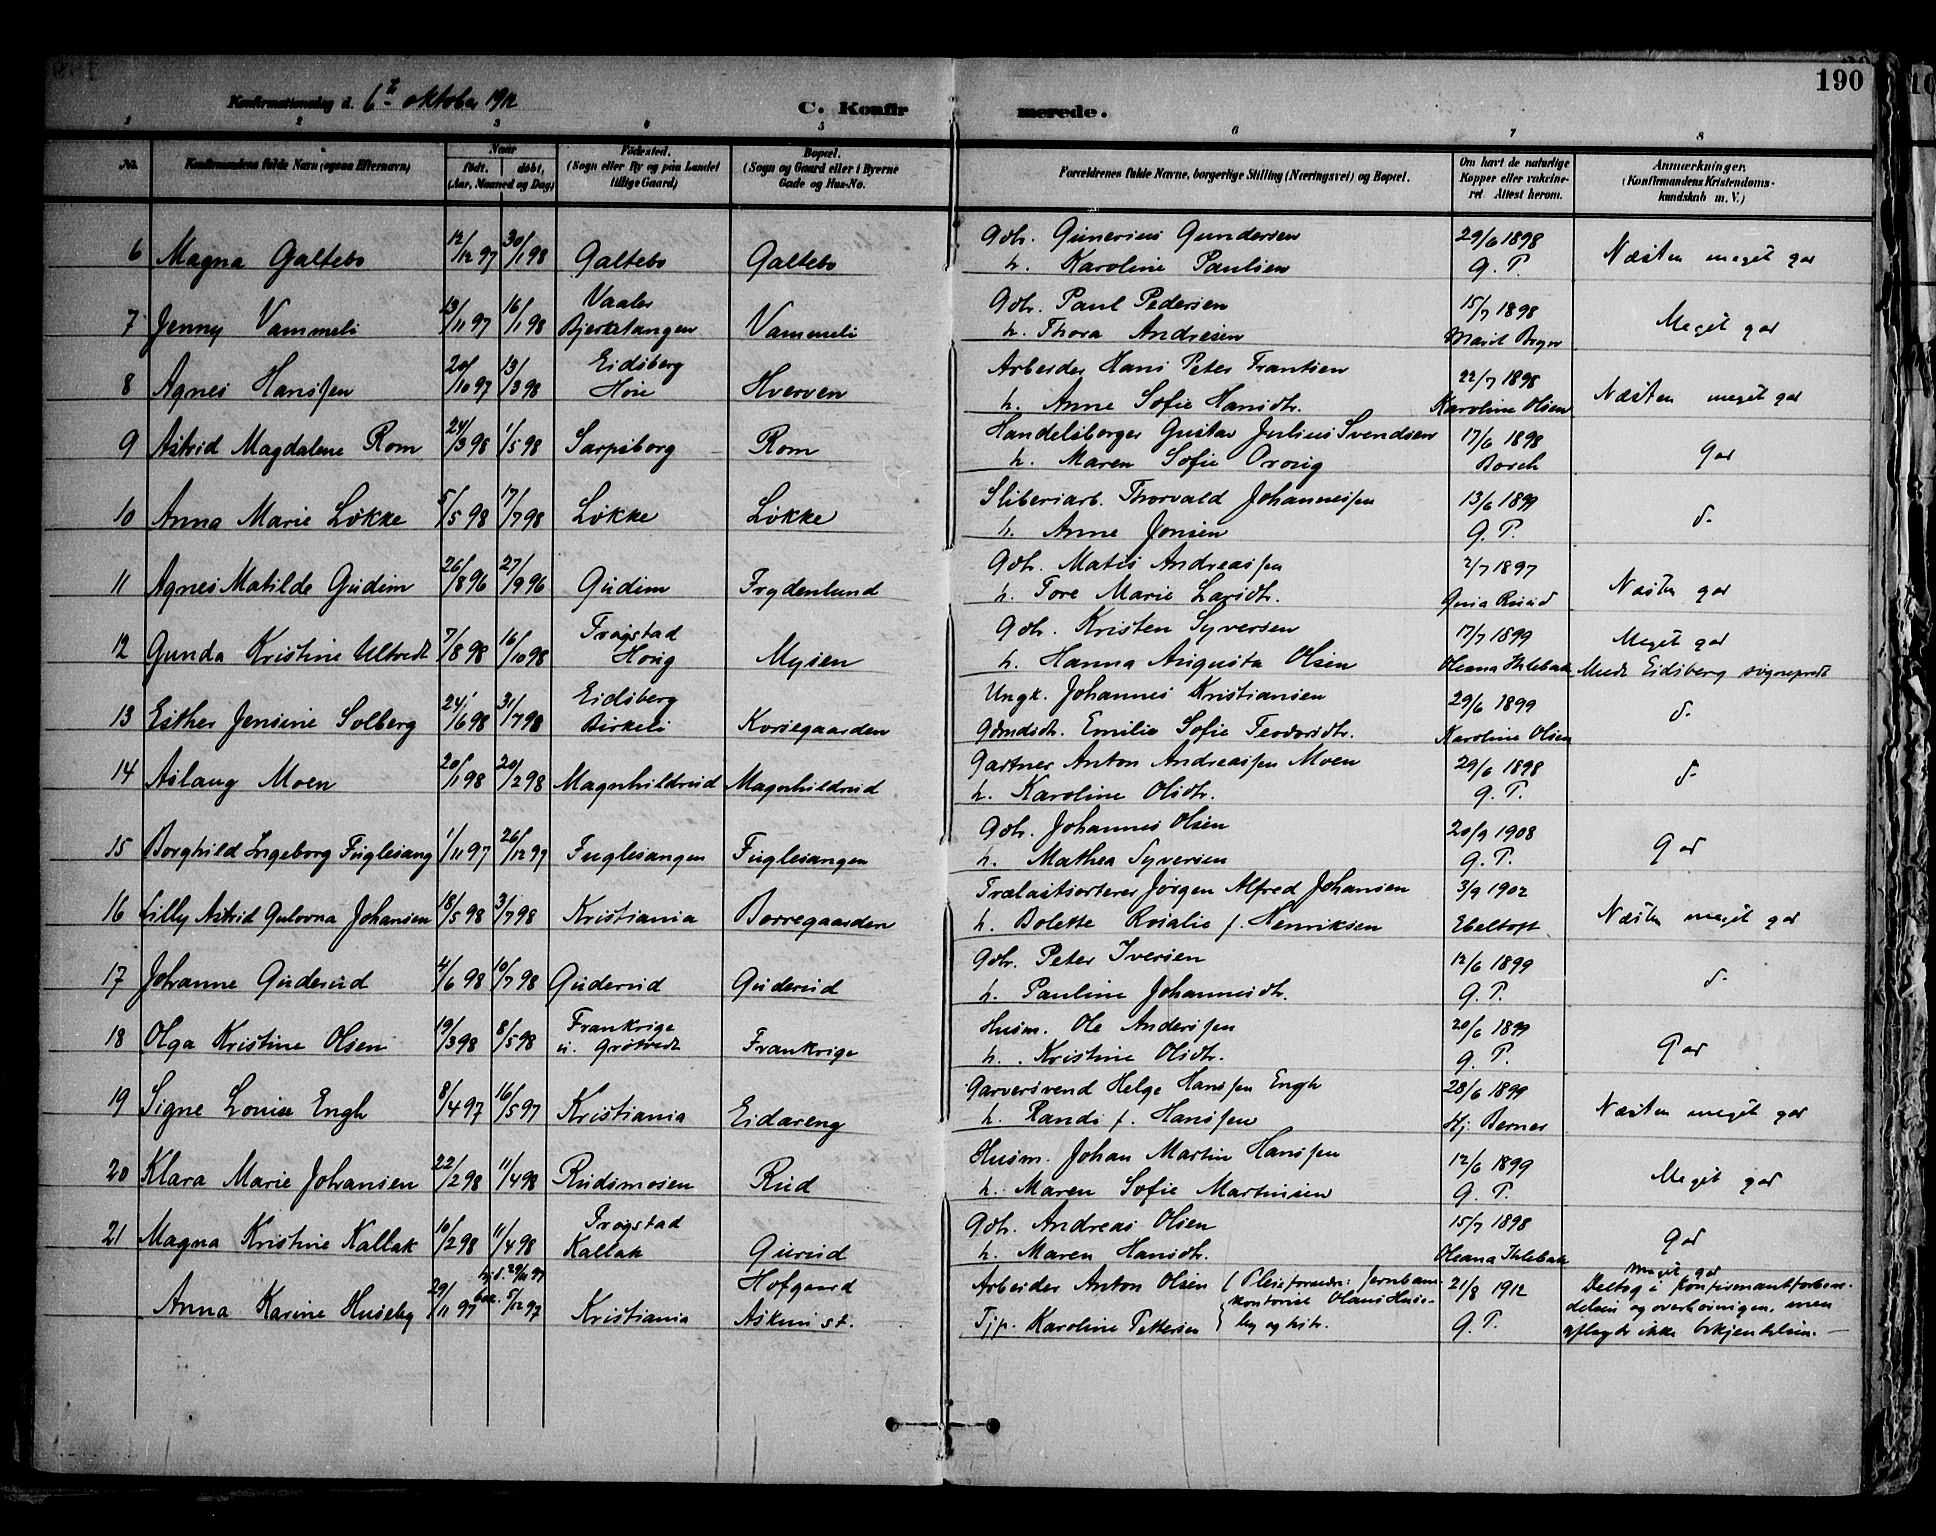 190
Konfirmationsdag d. 6te oktober 1912
C. Konfirmerede.
1 2 3 4 5 6 7 8
No. Konfirmandens fulde Navn (ogsaa Efternavn) Naar født, døbt, (Aar, Maaned og Dag) Fødested. (Sogn eller By og paa Landet tillige Gaard) Bopæl. (Sogn og Gaard eller i Byerne Gade og Hus-No. Forældrenes fulde Navne, borgerlige Stilling (Næringsvei) og Bopæl. Om havt de naturlige Kopper eller vakcineret. Attest herom. Anmærkninger. (Konfirmandens Kristendomskundskab m. V.)
Gdbr. Gunerius Gundersen 29/6 1898
6 Magna Galtebo 12/12 97 30/1 98 Galtebo Galtebo h. Karoline Paulsen G. P. Næsten meget god
Vaaler Gdbr. Paul Pedersen 15/7 1898
7 Jenny Vammeli 13/11 97 16/1 98 Bjerketangen Vammeli h. Thora Andresen Marit Meget god
Eidsberg Arbeider Hans Peter Frantsen 22/7 1898
8 Agnes Hanssen 20/10 97 13/3 98 Hverven h. Anne Sofie Hansdtr. Karoline Olsen Næsten meget god
Handelsborger Gustav Julius Svendsen 17/6 1898
9 Astrid Magdalene Rom 24/3 98 1/5 98 Sarpsborg Rom h. Maren Sofie Borch God
Sliberiarb. Thorvald Johannessen 13/6 1899
10 Anna Marie Løkke 5/5 98 17/7 98 Løkke Løkke h. Anne Jonsen G. P. d-
Gdbr. Matis Andreassen 2/7 1897
11 Agnes Matilde Gudim 26/8 96 27/9 96 Gudim Frydenlund h. Tore Marie Larsdtr. Næsten god
Trøgstad Gdbr. Kristen Syversen 17/7 1899 Meget god
12 Gunda Kristine Ultvedt 7/8 98 16/10 98 Mysen h. Hanna Augusta Olsen Oleana Ihlebæk Eidsberg sogneprest
Eidsberg Ungk. Johannes Kristiansen 29/6 1899
13 Esther Jensine Solberg 24/6 98 31/7 98 Birkeli Korsegaarden Emilie Sofie Teodorsdtr. Karoline Olsen d-
Gartner Anton Andreassen Moen 29/6 1898
14 Aslaug Moen 20/1 98 20/2 98 Magnhildrud Magnhildrud h. Karoline Olsdtr. G. P. d-
Gdbr. Johannes Olsen 20/9 1908
15 Borghild Ingeborg Fuglesang 1/11 97 26/12 97 Fuglesangen Fuglesangen h. Mathea Syversen G. P. God
Trælastsorterer Jørgen Alfred Johansen 3/9 1902
16 Lilly Astrid Gulovna Johansen 18/5 98 3/7 98 Kristiania Borregaarden h. Bolette Rosalie f. Henriksen Ebeltoft Næsten meget god
Gdbr. Peter Iversen 12/6 1899
17 Johanne Guderud 4/6 98 10/7 98 Guderud Guderud h. Pauline Johannesdtr. G. P. d-
Frankrige Husm. Ole Anderssen 20/6 1899
18 Olga Kristine Olsen 19/3 98 8/5 98 u. Grøtvedt Frankrige h. Kristine Olsdtr. G. P. God
Garversvend Helge Hanssen Engh 28/6 1899
19 Signe Louise Engh 8/4 97 16/5 97 Kristiania Eidareng h. Randi f. Hanssen Hj. Berner Næsten meget god
Husm. Johan Martin Hanssen 12/6 1899
20 Klara Marie Johansen 22/2 98 11/4 98 Rudsmosen Rud h. Maren Sofie Martinsen G. P. Meget god
Trøgstad Gdbr. Andreas Olsen 15/7 1898
21 Magna Kristine Kallak 10/2 98 11/4 98 Kallak Gurud h. Maren Hansdtr. Oleana Ihlebæk God
hjd. 29/11 97 Hofgaard Arbeider Anton Olsen Pleieforældre: Jernbane- 21/8 1912 Meget god Deltog i konfirmantforbere-
Anna Karine Huseby 29/11 97 5/12 97 Kristiania Askim st. kontorist Olaus Huse- delsen og overhøringen, men
Karoline Pettersen by og hstr. G. P. aflagde ikke bekjendelsen.